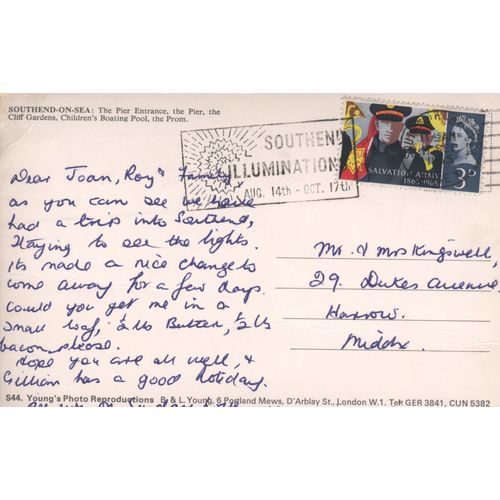 SOUTHEND-ON-SEA: The Pier Entrance, the Pier, the
Cliff Gardens, Children's Boating Pool, the Prom.
SOUTHEND
ILLUMINATION
AUG. 14th - OCT. 17th
SALVATION ARMY
1865-1965
3D
Dear Joan, Roy & Family
as you can see we have
had a trip into Southend,
Staying to see the lights.
Its made a nice change to
come away for a few days.
Could you get me in a
small loaf, ½ lb Butter, ½ lb
bacon please.
Hope you are all well, &
Gillian has a good holiday.
Mr. & Mrs Kingswell,
29. Dukes Avenue.
Harrow.
Middx.
S44. Young's Photo Reproductions B. & L. Young, 6 Portland Mews, D'Arblay St., London W.1. Tel: GER 3841, CUN 5382